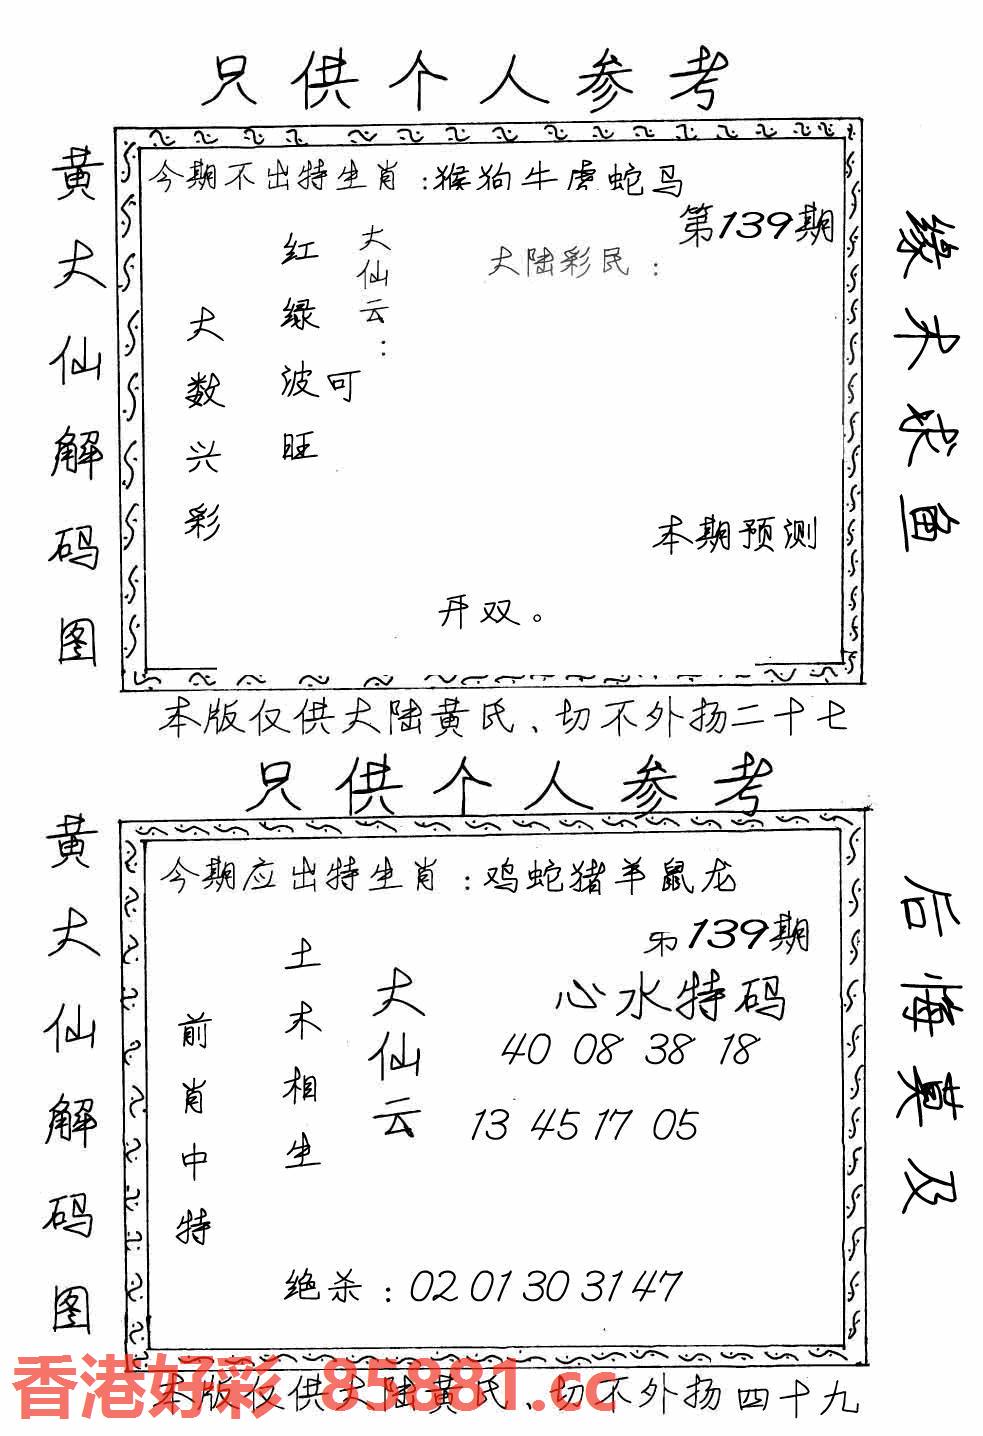 只供个人参考
黄大仙解码图
今期不出特生肖：猴狗牛虎蛇马
第139期
大陆彩民：
大仙云：
红绿波可旺
大数兴彩
本期预测
开双。
缘木求鱼
本版仅供大陆黄氏、切不外扬二十七
只供个人参考
黄大仙解码图
今期应出特生肖：鸡蛇猪羊鼠龙
139期
心水特码
大仙云
土木相生
前肖中特
40 08 38 18
13 45 17 05
绝杀：02 01 30 31 47
后悔莫及
香港好彩 85881.cc
本版仅供大陆黄氏、切不外扬四十九